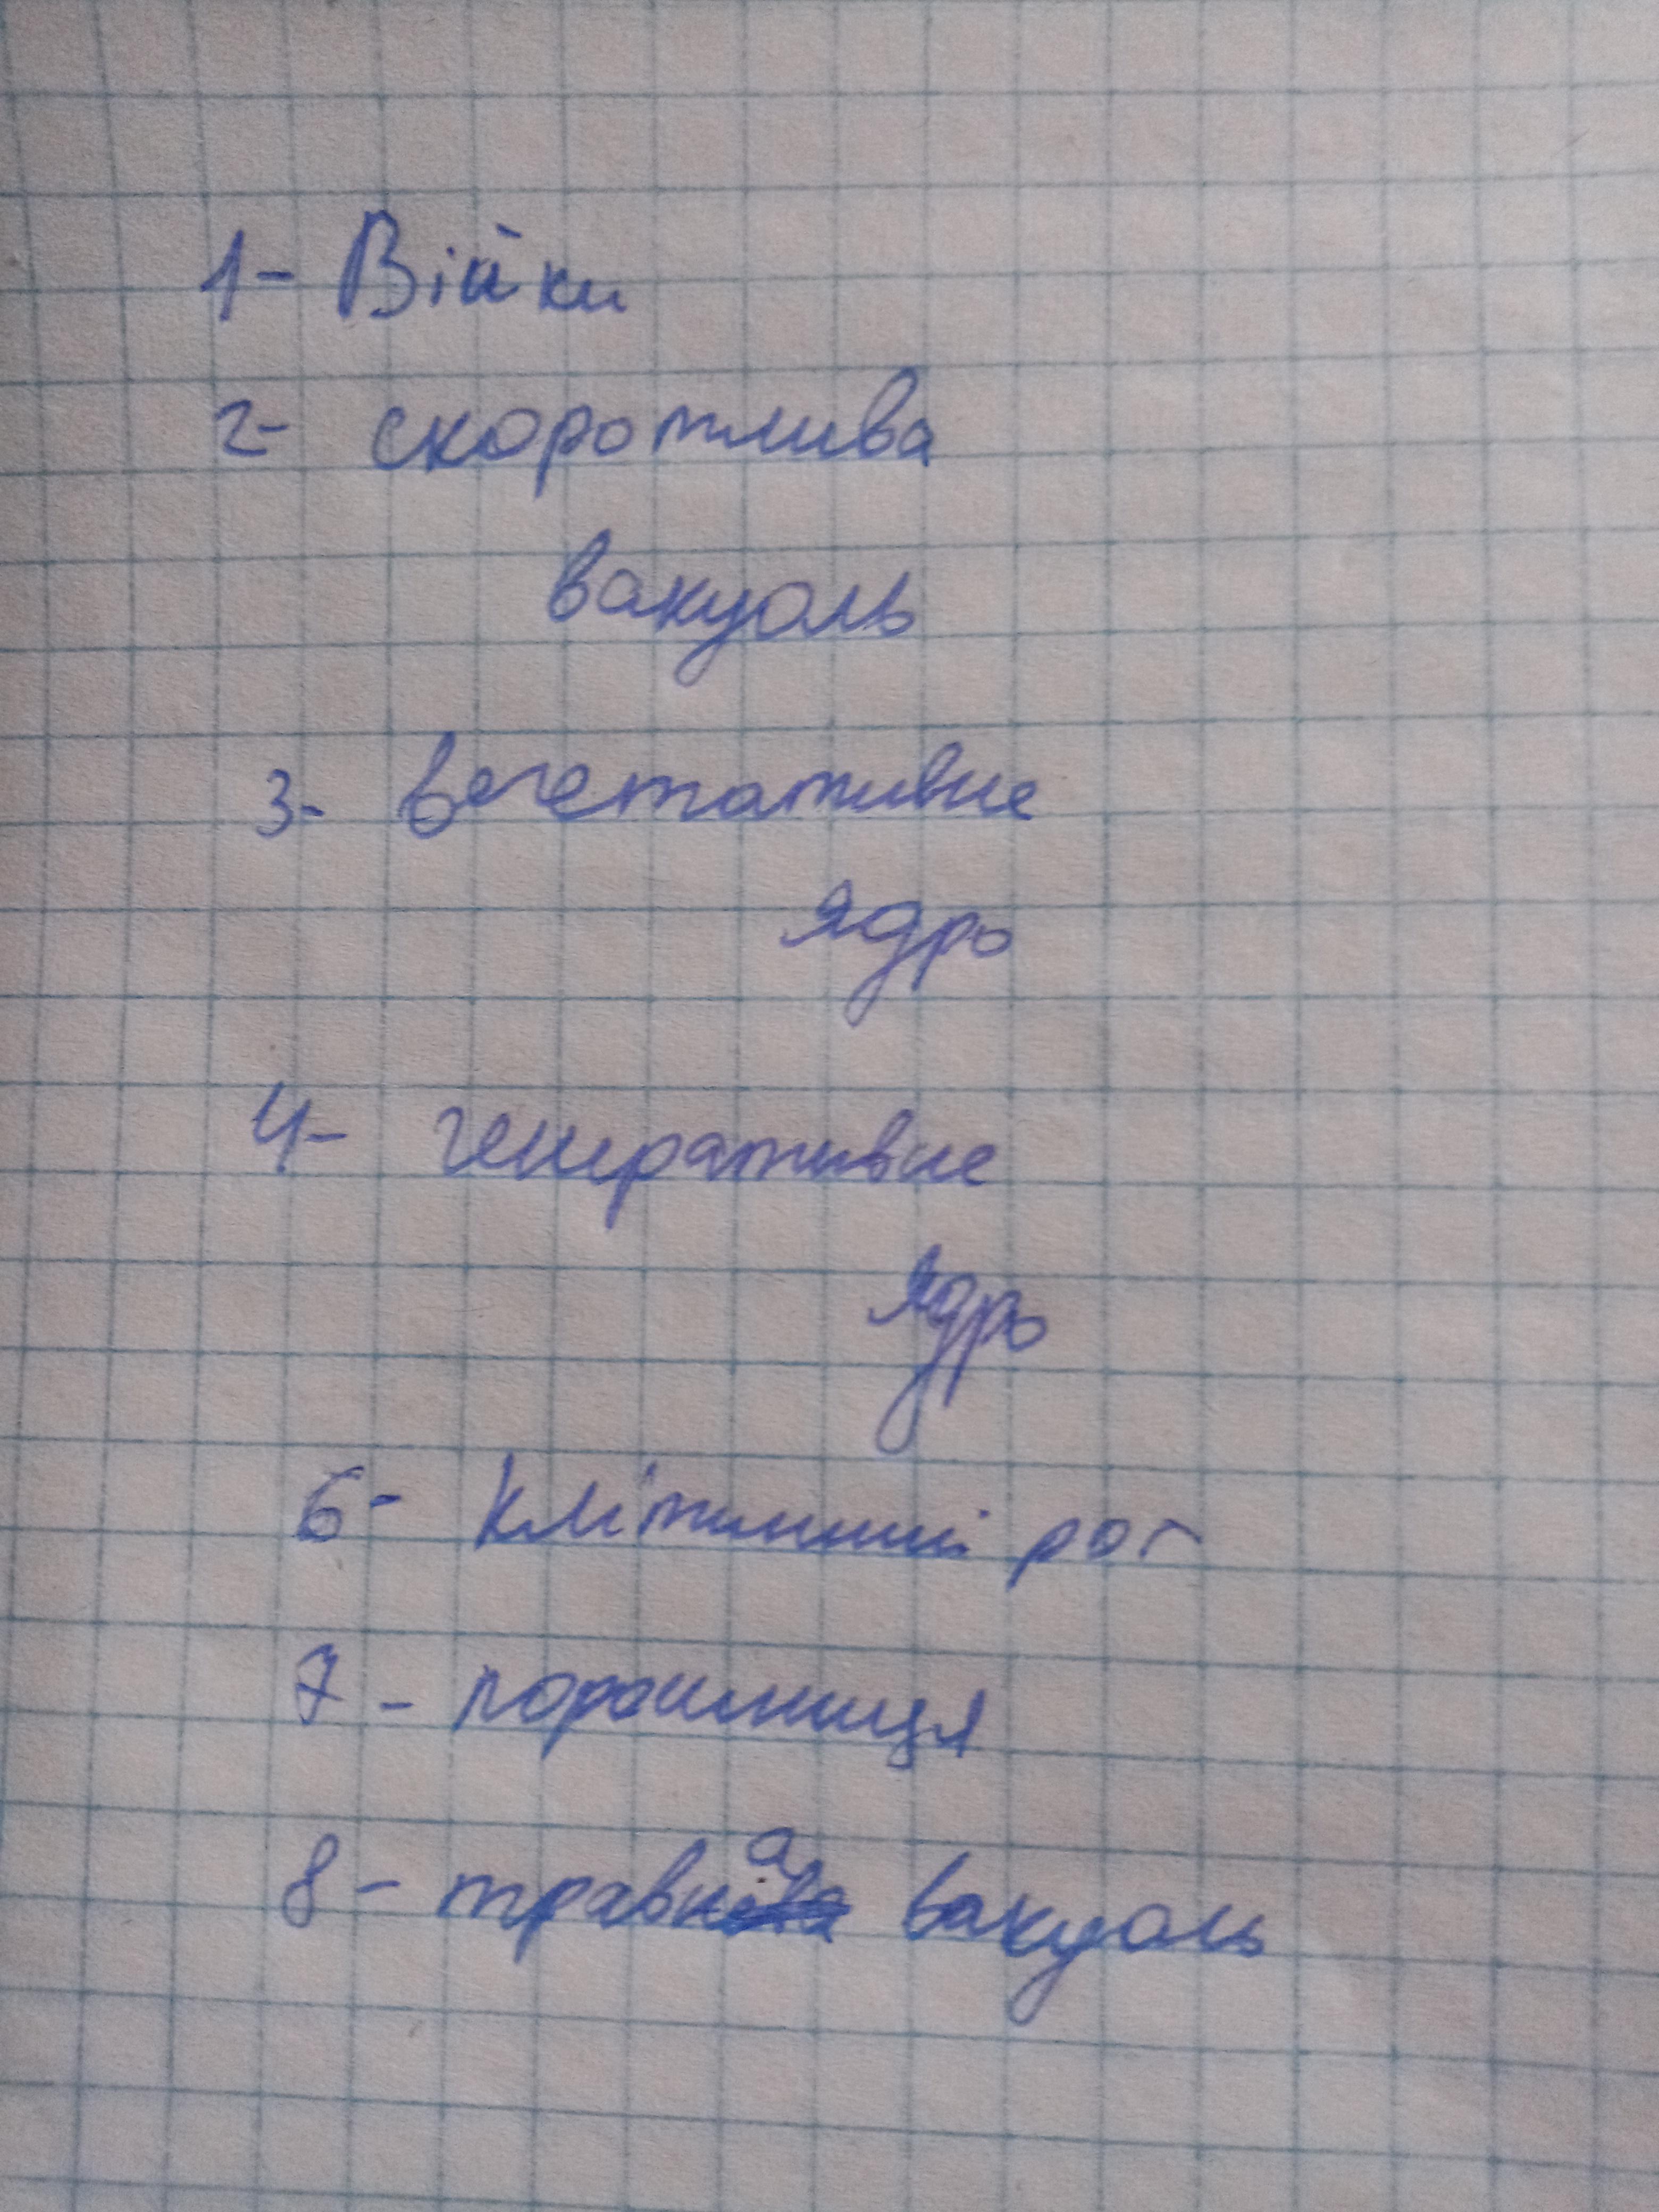 1- Війки
2- скоротлива
вакуоль
3- вегетативне
ядро
4- генеративне
ядро
6- клітинний рот
7- порошиця
8- травна вакуоль